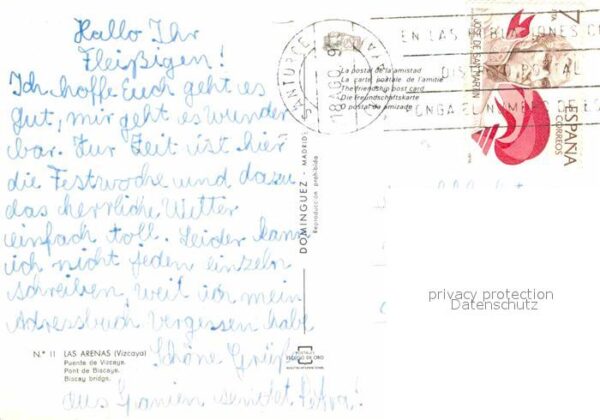 Hallo Ihr
Fleißigen!
Ich hoffe Euch geht es
gut, mir geht es wunder
bar. Zur Zeit ist hier
die Festwoche und dazu
das herrliche Wetter
einfach toll. Leider kann
ich nicht jeden einzeln
schreiben, weil ich mein
Adressbuch vergessen habe
Schöne Grüße
aus Spanien sendet Petra!
Nº 11 LAS ARENAS (Vizcaya)
Puente de Vizcaya.
Pont de Biscaye.
Biscay bridge.
DOMINGUEZ - MADRID
Reproducción prohibida
POSTALES
ESCUDO DE ORO
La postal de la amistad
La carte postale de l'amitié
The friendship post card
Die Freundschaftskarte
O postal da amizade
SANTURCE
VIZCAYA
18 AGO
EN LAS
DE
POSTAL
PONGA EL NUMERO DE
7
PTA
ESPAÑA
CORREOS
privacy protection
Datenschutz